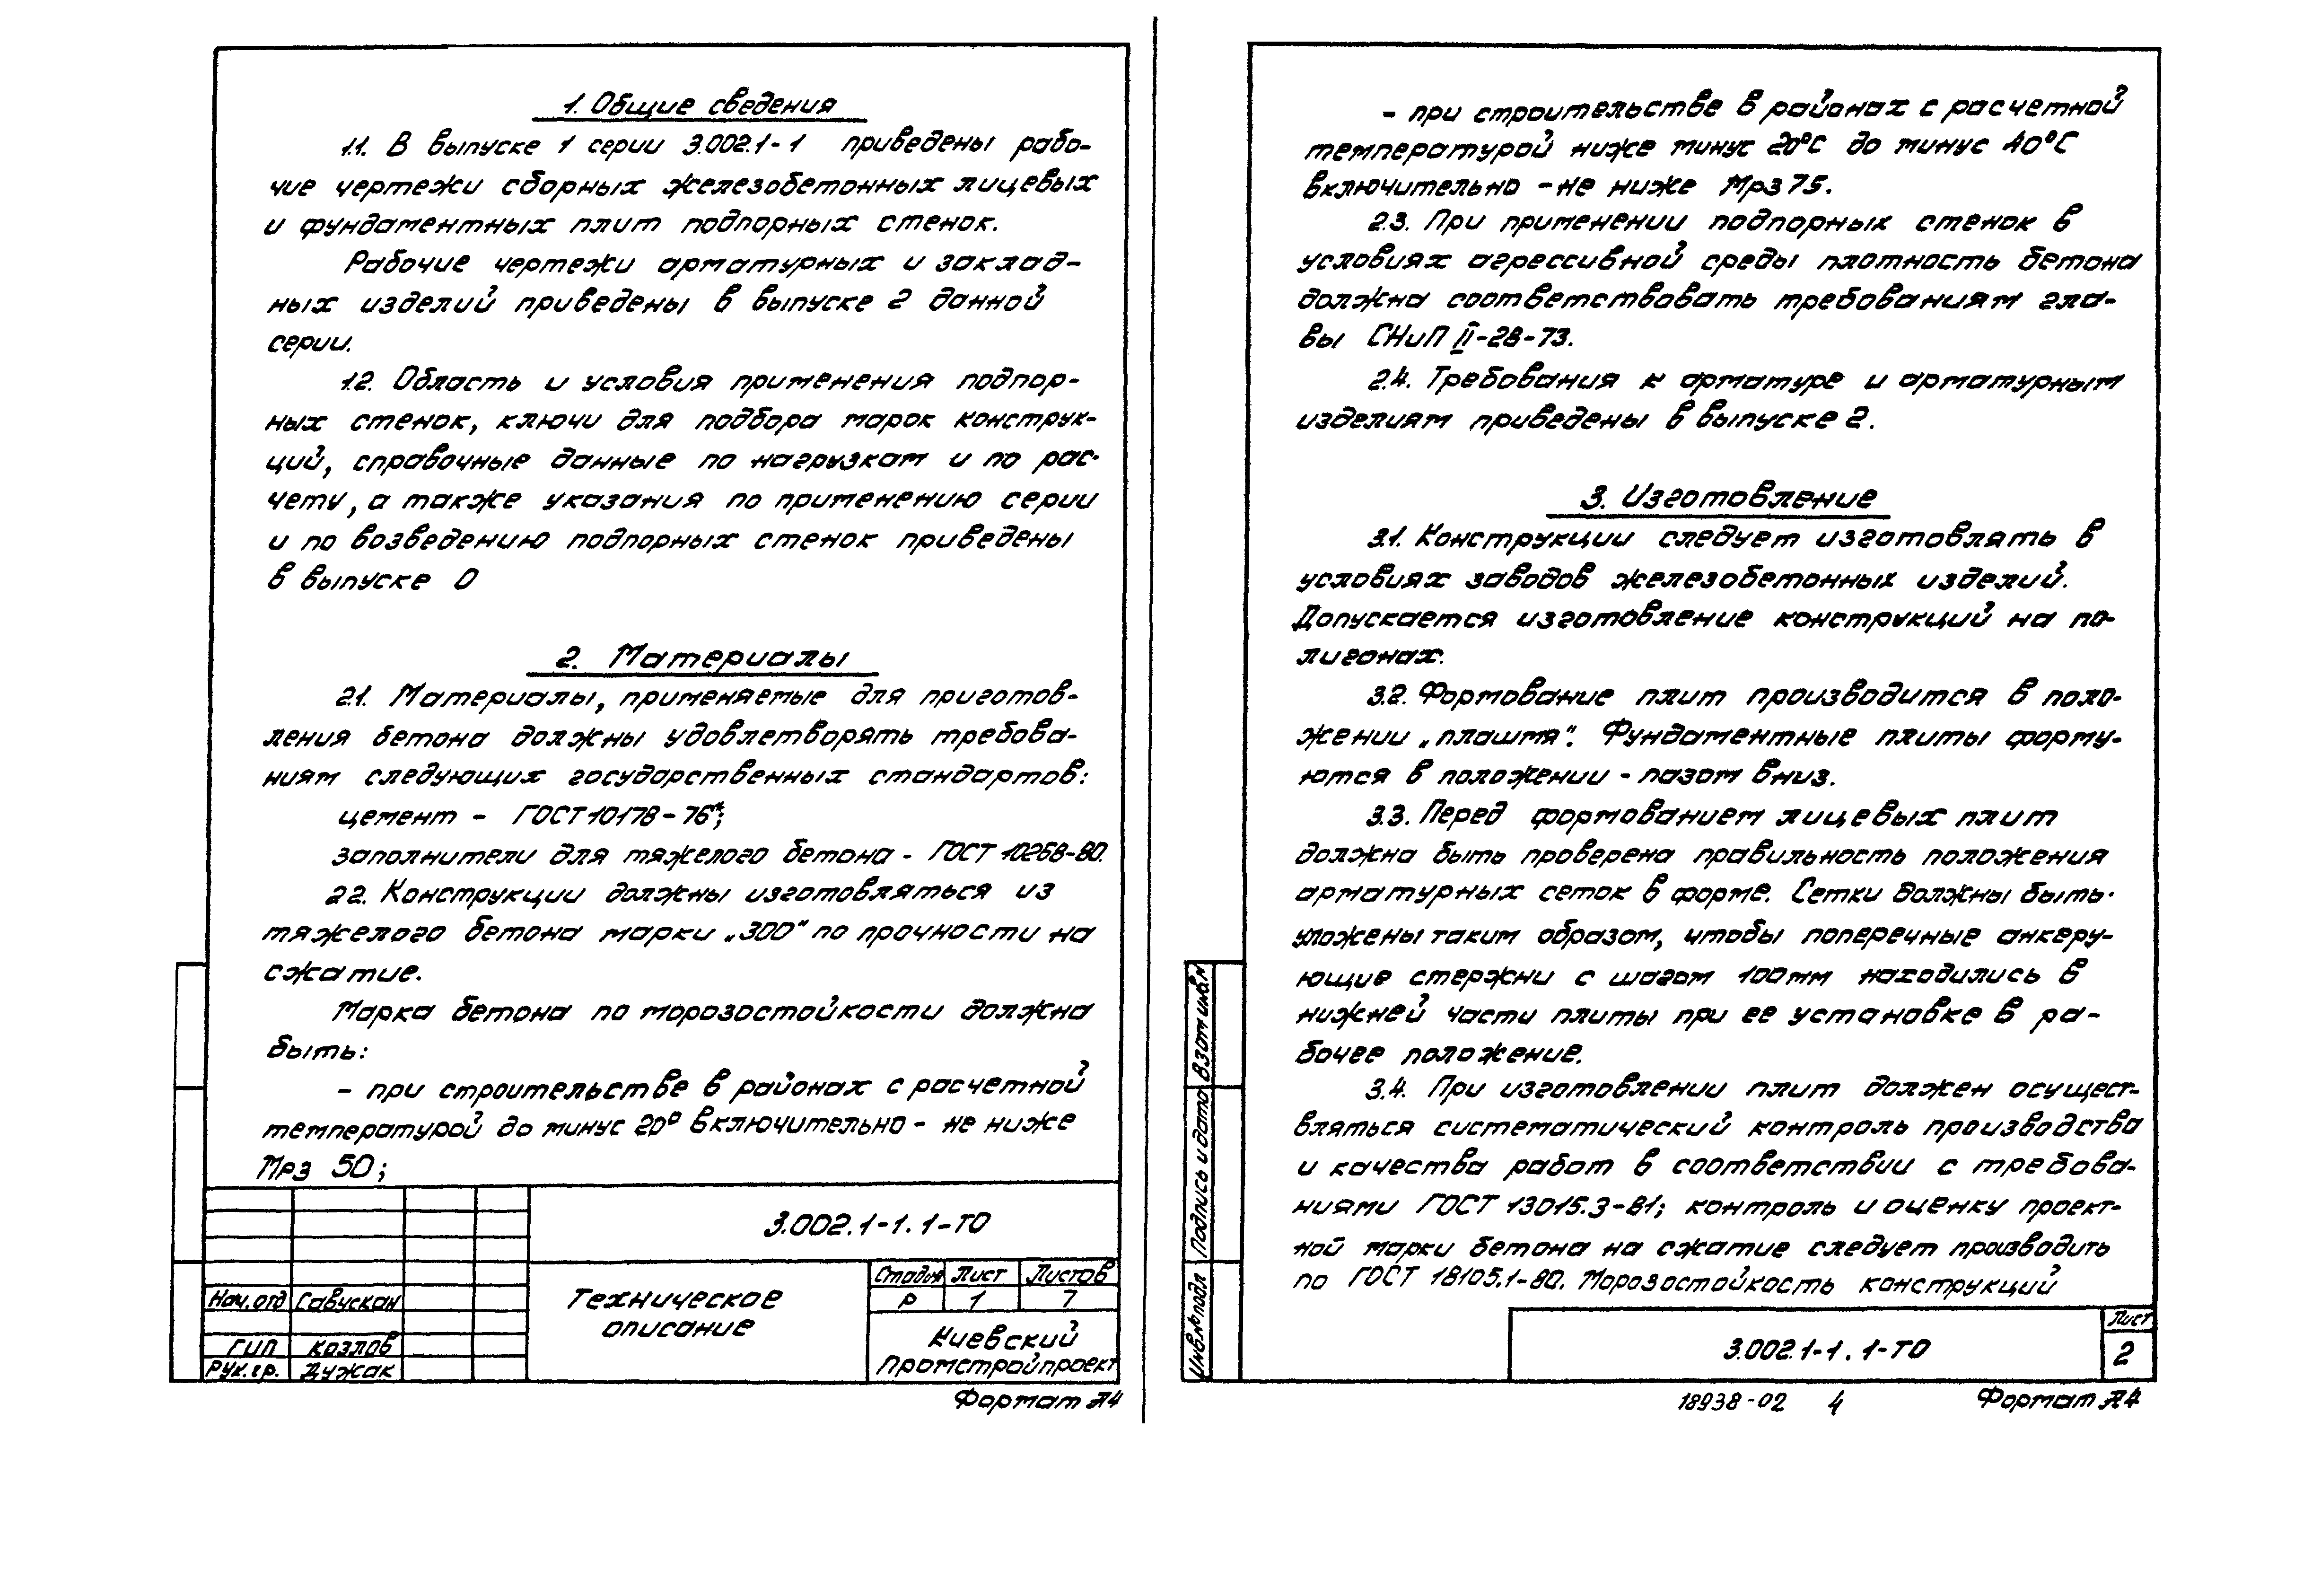 1. Общие сведения
1.1. В выпуске 1 серии 3.002.1-1 приведены рабо-
чие чертежи сборных железобетонных лицевых
и фундаментных плит подпорных стенок.
Рабочие чертежи арматурных и заклад-
ных изделий приведены в выпуске 2 данной
серии.
1.2. Область и условия применения подпор-
ных стенок, ключи для подбора марок конструк-
ций, справочные данные по нагрузкам и по рас-
чету, а также указания по применению серии
и по возведению подпорных стенок приведены
в выпуске 0
2. Материалы
2.1. Материалы, применяемые для приготов-
ления бетона должны удовлетворять требова-
ниям следующих государственных стандартов:
цемент - ГОСТ 10178-76*;
заполнители для тяжелого бетона - ГОСТ 10268-80.
2.2. Конструкции должны изготовляться из
тяжелого бетона марки „300" по прочности на
сжатие.
Марка бетона по морозостойкости должна
быть:
- при строительстве в районах с расчетной
температурой до минус 20° включительно - не ниже
Мрз 50;
3.002.1-1.1-ТО
Нач.отд Савускан
ГИП Козлов
Рук.гр. Дужак
Техническое
описание
Стадия Лист Листов
Р 1 7
Киевский
Промстройпроект
Формат А4
- при строительстве в районах с расчетной
температурой ниже минус 20°С до минус 40°С
включительно - не ниже Мрз 75.
2.3. При применении подпорных стенок в
условиях агрессивной среды плотность бетона
должна соответствовать требованиям гла-
вы СНиП II-28-73.
2.4. Требования к арматуре и арматурным
изделиям приведены в выпуске 2.
3. Изготовление
3.1. Конструкции следует изготовлять в
условиях заводов железобетонных изделий.
Допускается изготовление конструкций на по-
лигонах.
3.2. Формование плит производится в поло-
жении „плашмя". Фундаментные плиты форму-
ются в положении - пазом вниз.
3.3. Перед формованием лицевых плит
должна быть проверена правильность положения
арматурных сеток в форме. Сетки должны быть
уложены таким образом, чтобы поперечные анкеру-
ющие стержни с шагом 100мм находились в
нижней части плиты при ее установке в ра-
бочее положение.
3.4. При изготовлении плит должен осущест-
вляться систематический контроль производства
и качества работ в соответствии с требова-
ниями ГОСТ 13015.3-81; контроль и оценку проект-
ной марки бетона на сжатие следует производить
по ГОСТ 18105.1-80. Морозостойкость конструкций
Инв.№подл Подпись и дата Взам инв.№
3.002.1-1.1-ТО
Лист
2
18938-02 4
Формат А4